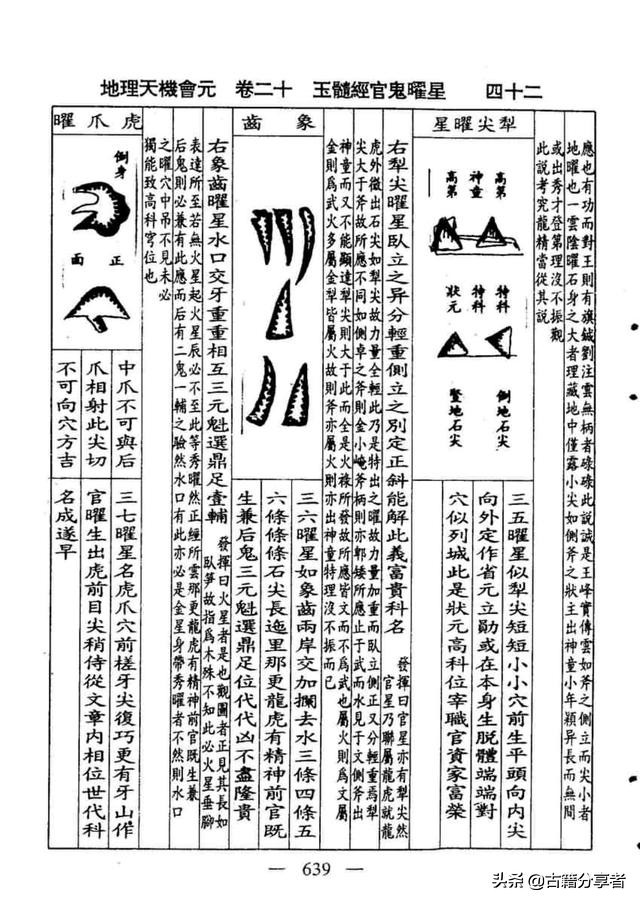 地理天機會元　卷二十　玉髓經官鬼曜星　四十二
應也有功而對王則有旗鉞劉注雲無柄者碌碌此說誠是王峰實傳雲如斧之側立而尖小者
地曜也一雲陰曜石身之大者理藏地中僅露小尖如側斧之狀主出神童小年穎异長而無間
或出秀才登第理沒不振觀
此說考究龍精當從其說
犁尖曜星
高第
神童
高第
特科
特科
狀元
倒地石尖
豎地石尖
三五曜星似犁尖短短小小穴前生平頭向內尖
向外定作省元立勛或在本身生脫體端端對
穴似列城此是狀元高科位宰職官資家富榮
右犁尖曜星臥立之异分輕重側立之別定正斜能解此義富貴科名
發揮曰官星亦有犁尖然
官星乃聯屬龍虎就龍
虎外微出石尖如犁尖故力量全輕此乃是特出之曜故力量加重而臥立側正又分輕重焉犁
尖大于斧故所應不同如側卓之斧則金小崦斧柄則亦郭矮所應止于武而水見于文側斧出
神童而又不能顯達犁尖則大于此而全是火祿所發故所應皆文而不為武也屬火則為文屬
金則為武火多屬金犁皆屬火故則斧亦屬火則亦出神童特理沒不振而已
象齒
三六曜星如象齒兩岸交加攔去水三條四條五
六條條條石尖長迤里那更龍虎有精神前官既
生兼后鬼三元魁選鼎足位代代凶不盡隆貴
右象齒曜星水口交牙重重相互三元魁選鼎足壹輔
發揮曰火星者是也觀圖者正見其長如
臥笋故指為木殊不知此必火星垂腳
表達所至若無火星起火星辰必不至此等秀曜然正經所雲那更龍虎有精神前官既生兼
后鬼則必兼有此應而后有二鬼一輔之驗然水口有此亦必是金星身帶秀曜者不然則水口
之曜穴中吊不見未必
獨能致高科穹位也
虎爪曜
倒身
正面
中爪不可與后
爪相射此尖切
不可向穴方吉
三七曜星名虎爪穴前槎牙尖復巧更有牙山作
官曜生出虎前目尖稍侍從文章內相位世代科
名成遂早
— 639 —
头条@古籍分享者